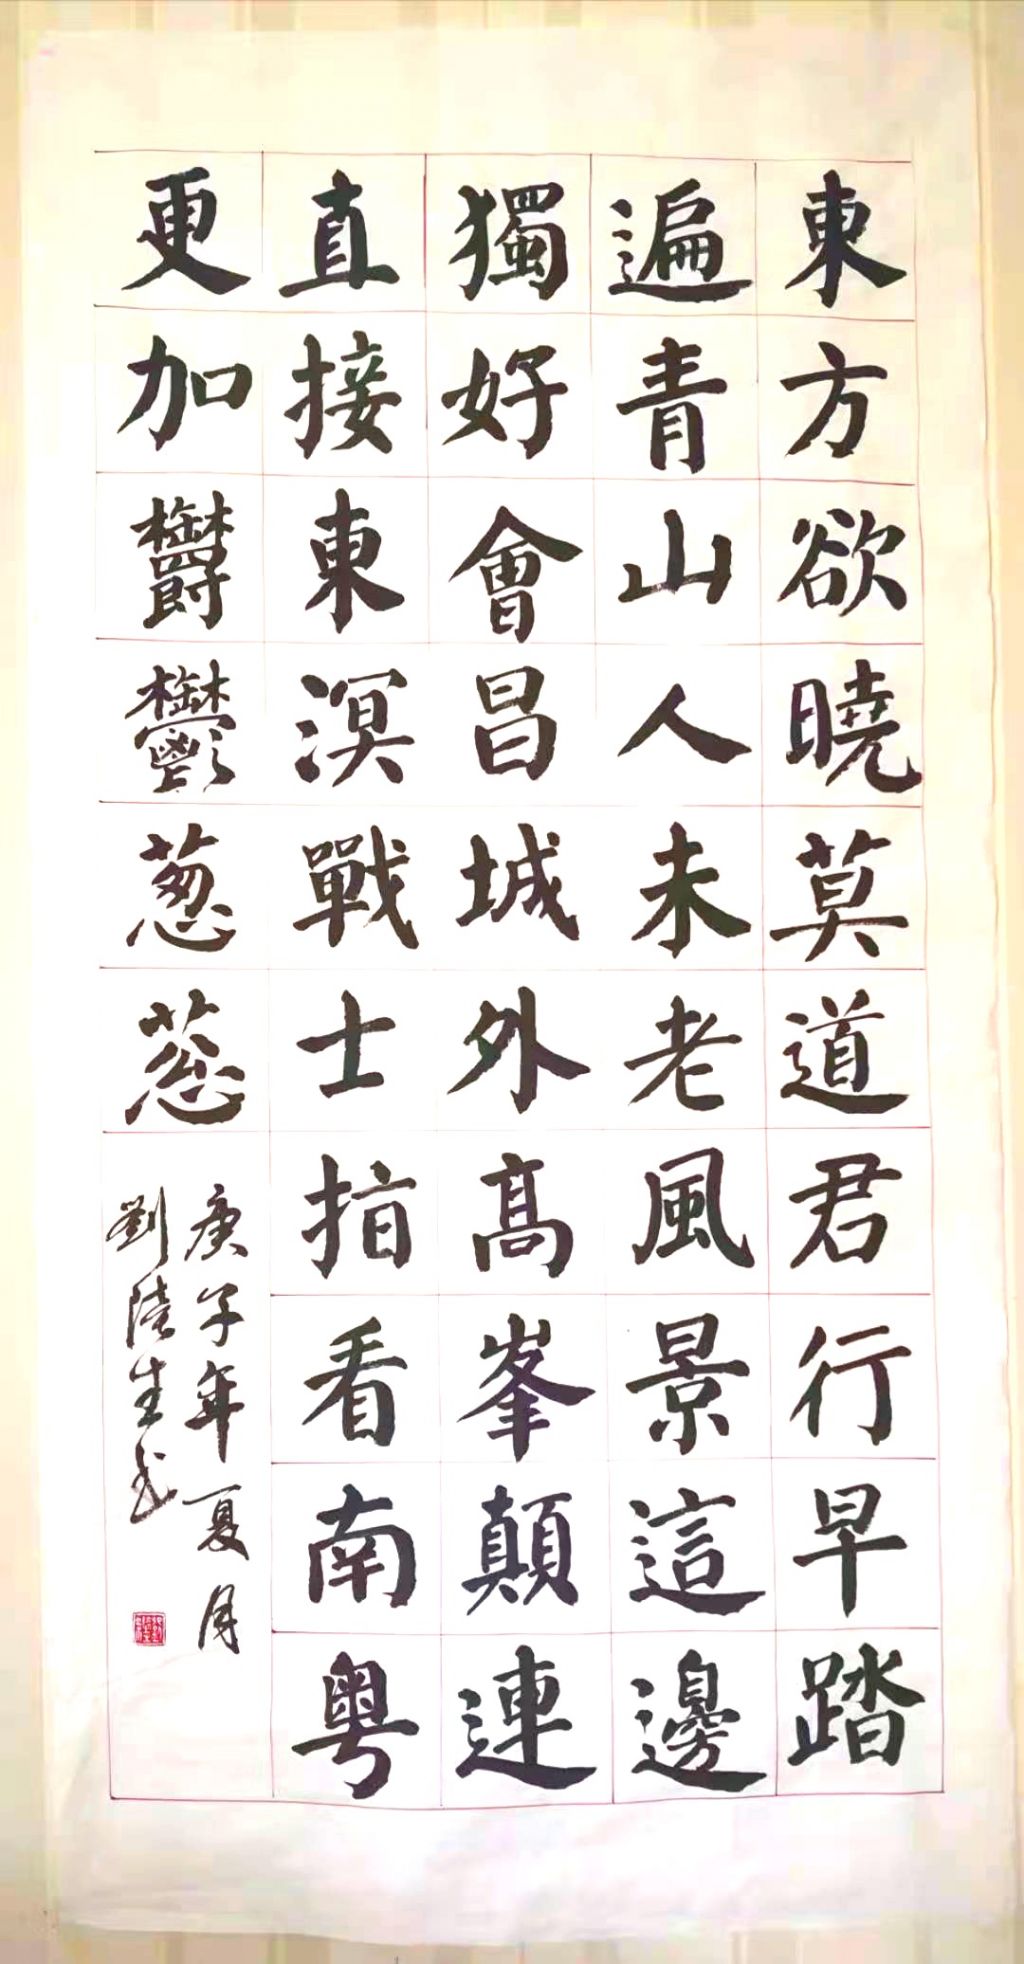 東方欲曉莫道君行早踏
遍青山人未老風景這邊
獨好會昌城外高峯顛連
直接東溟戰士指看南粵
更加欝鬱葱蔥
庚子年夏月
劉陸生書